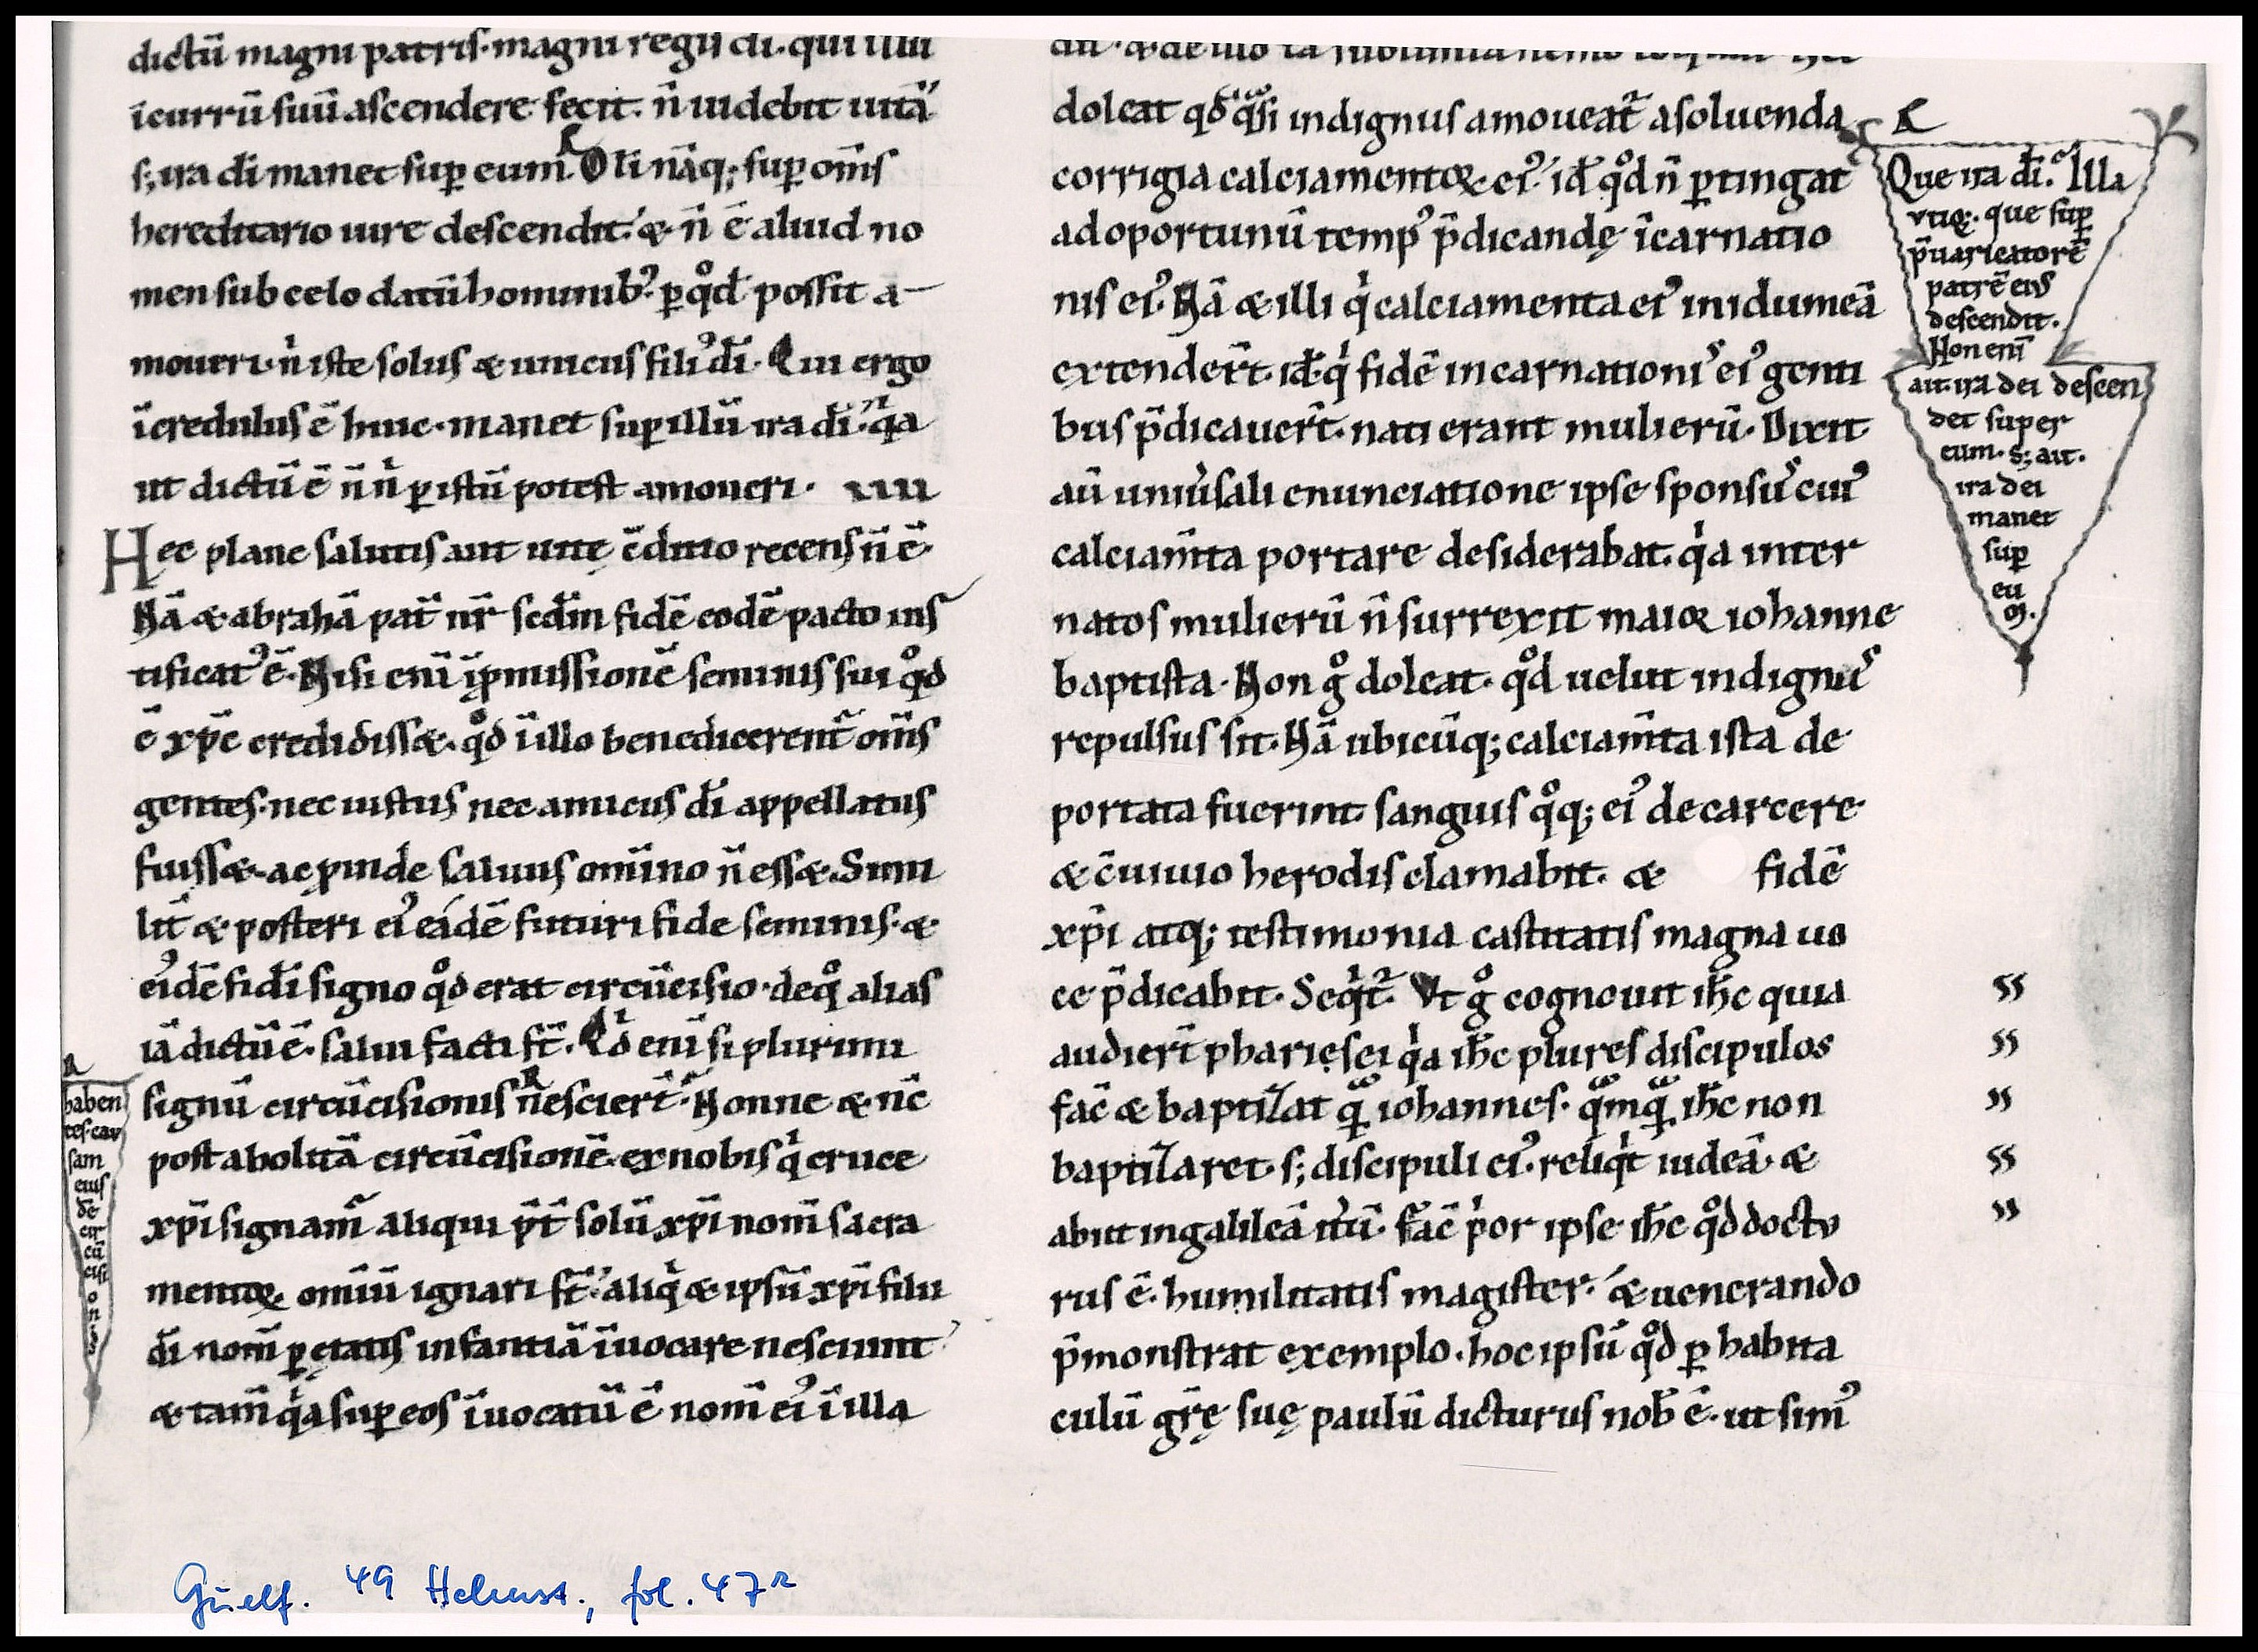 dictū magni patris· magni regis di· qui illū
īcurrū suū ascendere fecit. n̄ uidebit uitā
s; ira di manet sup eum. Oli nāq; sup om̄s
hereditario iure descendit. & n̄ ē aliud no
men sub celo datū hominib᾿. p qd̄ possit a-
moueri· n̄ iste solus & unicus fili᾿ di· Qui ergo
īcredulus ē huic· manet sup illū ira di· qa
ut dictū ē n̄ n̄ p istū potest amoueri· ıııı
Hec plane salutis aut uitę c̄ditio recens n̄ ē·
Nā & abrahā pat̄ nr̄ scd̄m fidē eodē pacto ius
tificat᾿ ē· Nisi eni īpmissionē seminis sui qd̄
ē xp̄c credidiss&· qd̄ ī illo benedicerent̄ om̄s
gentes· nec iustus nec amicus di appellatus
fuiss&· ac pinde saluus om̄ino n̄ ess&. Simi
lit̄ & posteri ei᾿ eidē futuri fide seminis· &
ei᾿dē fidi signo qd̄ erat circūcisio· deq alias
iā dictū ē· salui facti st̄· Qd̄ eni si plurimi
signū circūcisionis nescier̄t· Nonne & nc̄
post abolitā circūcisionē· ex nobis q cruce
xp̄i signam̄ aliqui p̄t solū xp̄i nom̄ sacra
mentoꝝ omiū ignari st̄· aliq & ipsū xp̄i filii
di nom̄ p ętatis infantiā īuocare nesciunt
& tam̄ qa sup eos īuocatū ē nom̄ ei᾿ ī illa
haben
tes· cau
sam
eius
de
cir
cū
cisi
o
n
is
doleat qd̄ q̄si indignus amoueat̄ a soluenda
corrigia calciamentoꝝ ei᾿· id̄ qd̄ n̄ ptingat
ad oportunū temp᾿ p̄dicandę īcarnatio
nis ei᾿· Nā & illi q calciamenta ei᾿ in idumeā
extender̄t· id̄· q fidē incarnationi᾿ ei᾿ genti
bus p̄dicauer̄t· nati erant mulierū· Dixit
aū uniu᾿sali enunciatione ipse sponsu᾿ cui᾿
calciam̄ta portare desiderabat· qa inter
natos mulierū n̄ surrexit maioꝛ iohanne
baptista· Non g doleat· qd̄ uelut indignu᾿
repulsus sit· Nā ubicūq; calciam̄ta ista de
portata fuerint sanguis qq; ei᾿ de carcere
& c̄uiuio herodis clamabit· & fidē
xp̄i atq; testimonia castitatis magna uo
ce p̄dicabit· Seq̄t̄· Vt g cognouit ih̄c quia
audier̄t pharięsei qa ih̄c plures discipulos
fac̄ & baptizat q̄ iohannes· q̄mq̄ ih̄c non
baptizaret· s; discipuli ei᾿· reliqt iudeā· &
abiit in galileā it᾿ū· fac̄ p᾿or ipse ih̄c qd̄ doctu
rus ē· humilitatis magister· & uenerando
p̄monstrat exemplo· hoc ipsū qd̄ p habita
culū gr̄ę suę paulū dicturus nob̄ ē· ut sim᾿
Que ira di. Illa
vtiq;· que sup
p̄uaricatorē
patrē eius
descendit.
Non eni
ait· ira dei descen
det super
eum· s; ait·
ira dei
manet
sup
eu
m.
Guelf. 49 Helmst., fol. 47r